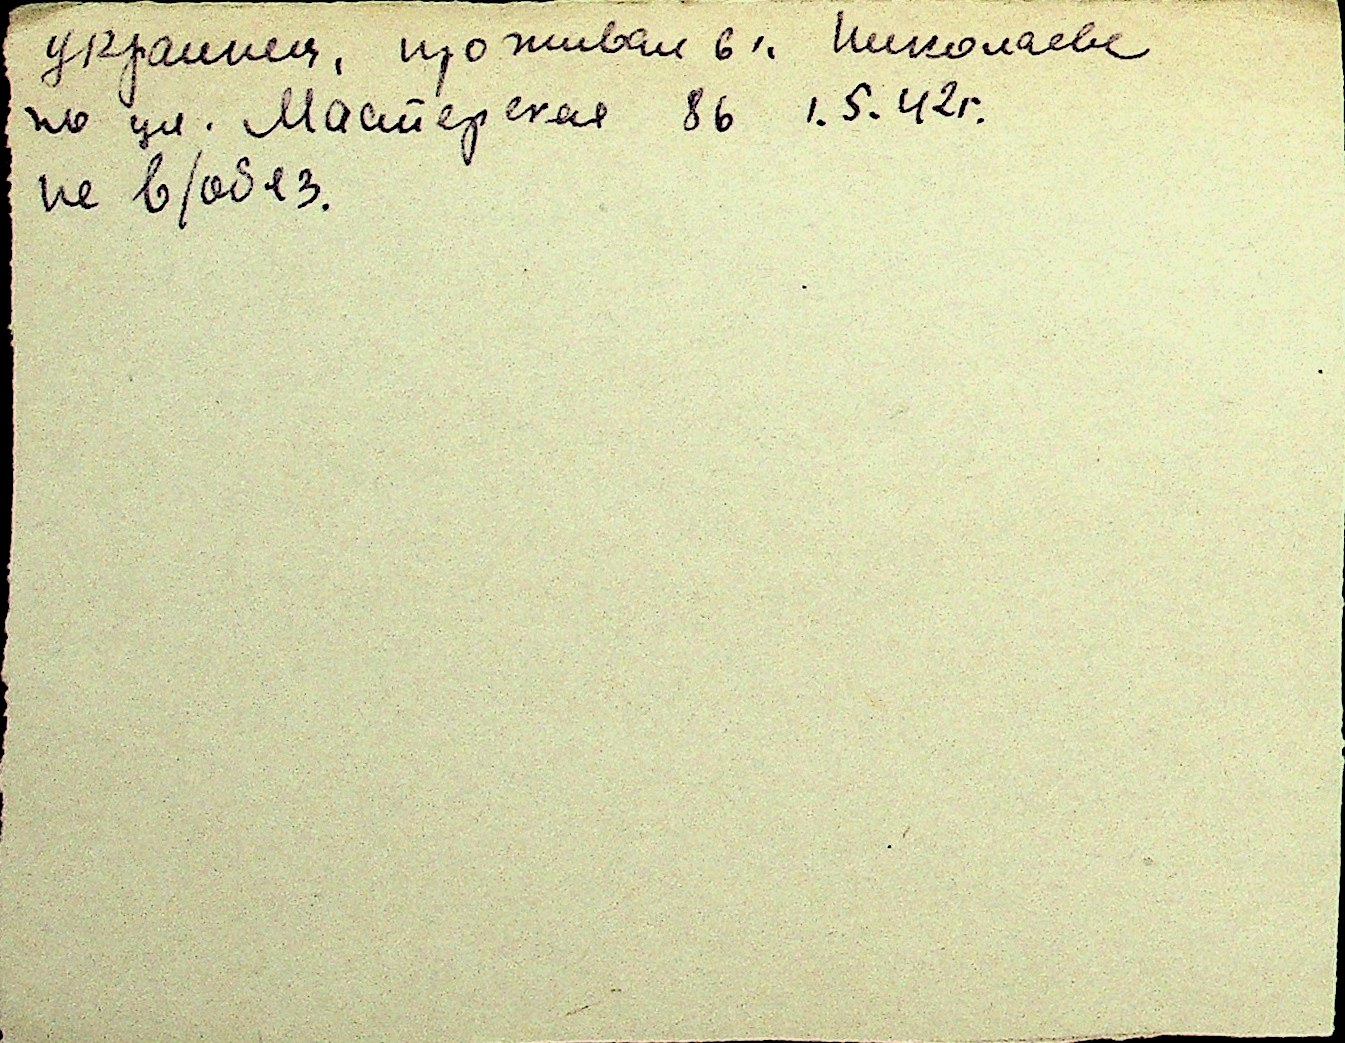 украинец, проживал в г. Николаеве
по ул. Мастерская 86 1.5.42г.
не в/обяз.